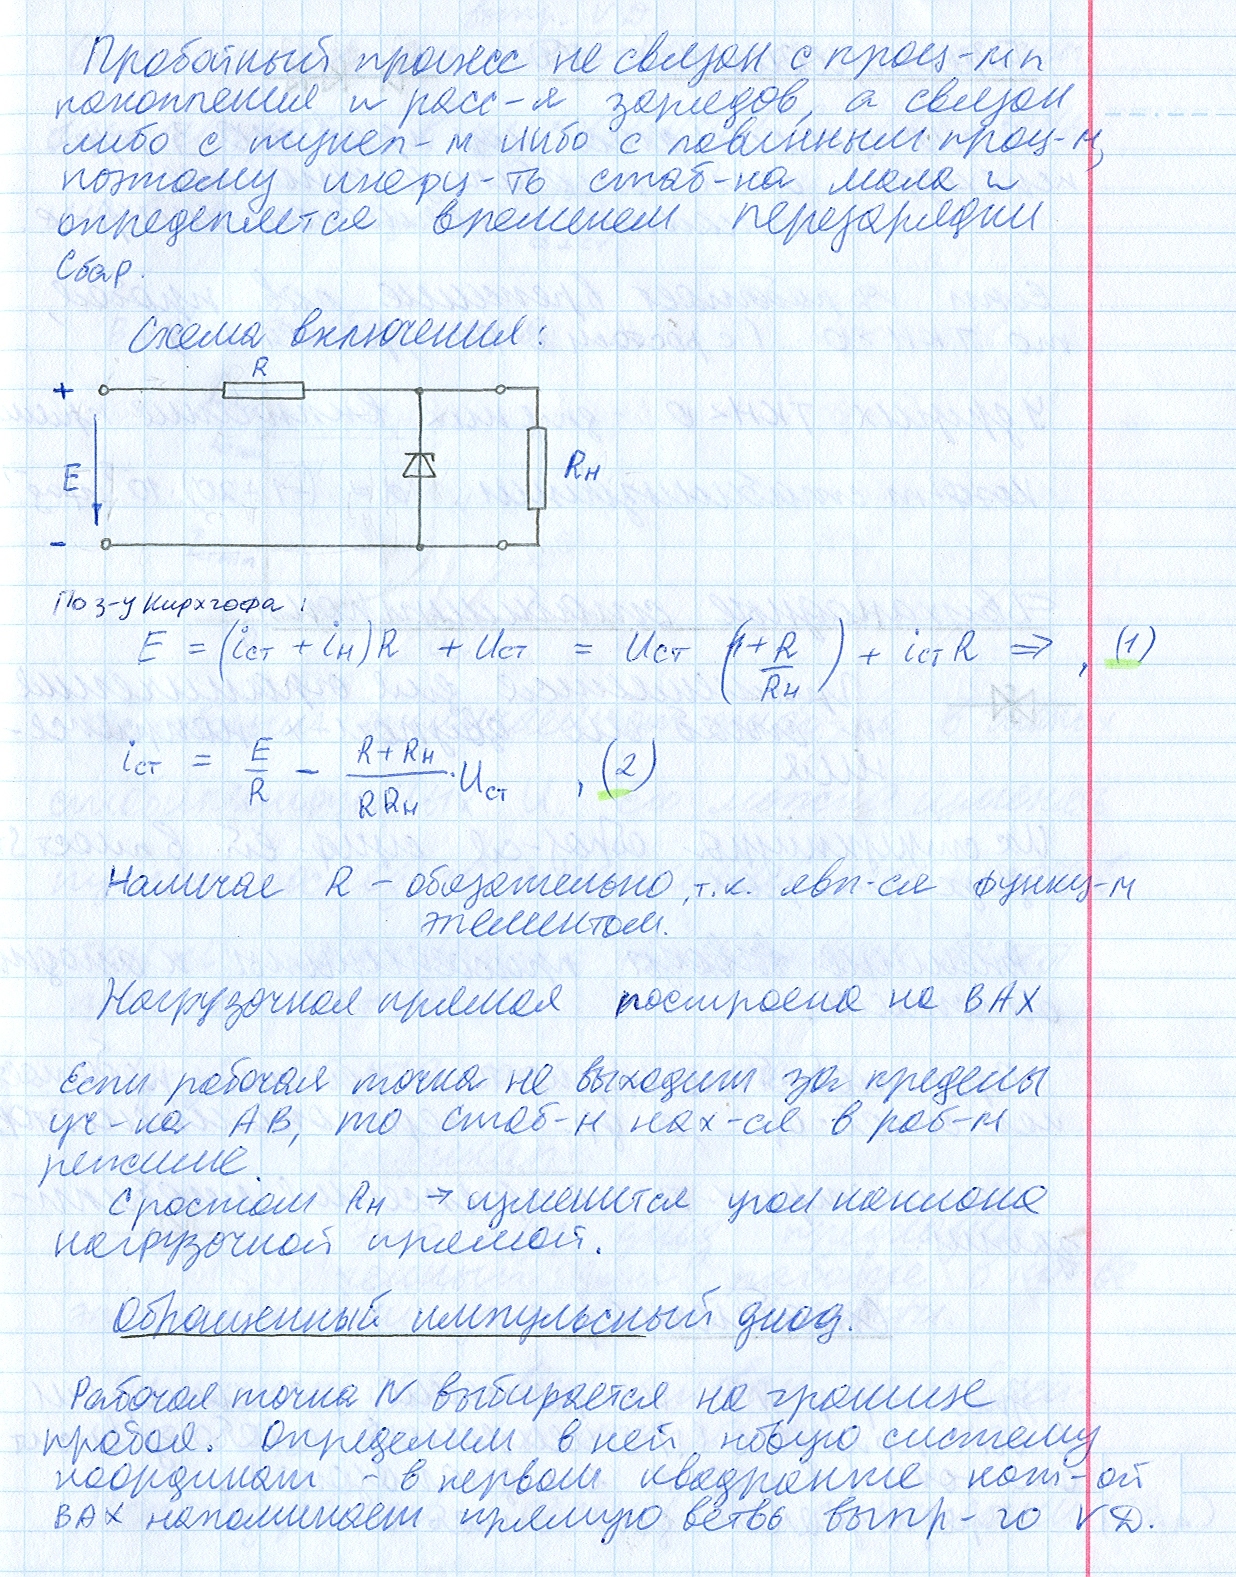 Пробойный процесс не связан с проц-ми
накопления и расс-я зарядов, а связан
либо с тунел-м либо с лавинным проц-м,
поэтому инерц-ть стаб-на мала и
определяется временем перезарядки
Сбар.
Схема включения:
R
+
E
Rн
-
По з-у Кирхгофа:
E = (iст + iн)R + Uст = Uст (1 + R/Rн) + iст R ⇒ , (1)
iст = E/R - (R+Rн)/(RRн) · Uст , (2)
Наличие R – обязательно, т.к. явл-ся функц-м
элементом.
Нагрузочная прямая построена на ВАХ
Если рабочая точка не выходит за пределы
уч-ка АВ, то стаб-н нах-ся в раб-м
режиме.
С ростом Rн → изменится угол наклона
нагрузочной прямой.
Обращенный импульсный диод.
Рабочая точка N выбирается на границе
пробоя. Определим в ней новую систему
координат – в первом квадранте кот-ой
ВАХ напоминает прямую ветвь выпр-го VД.